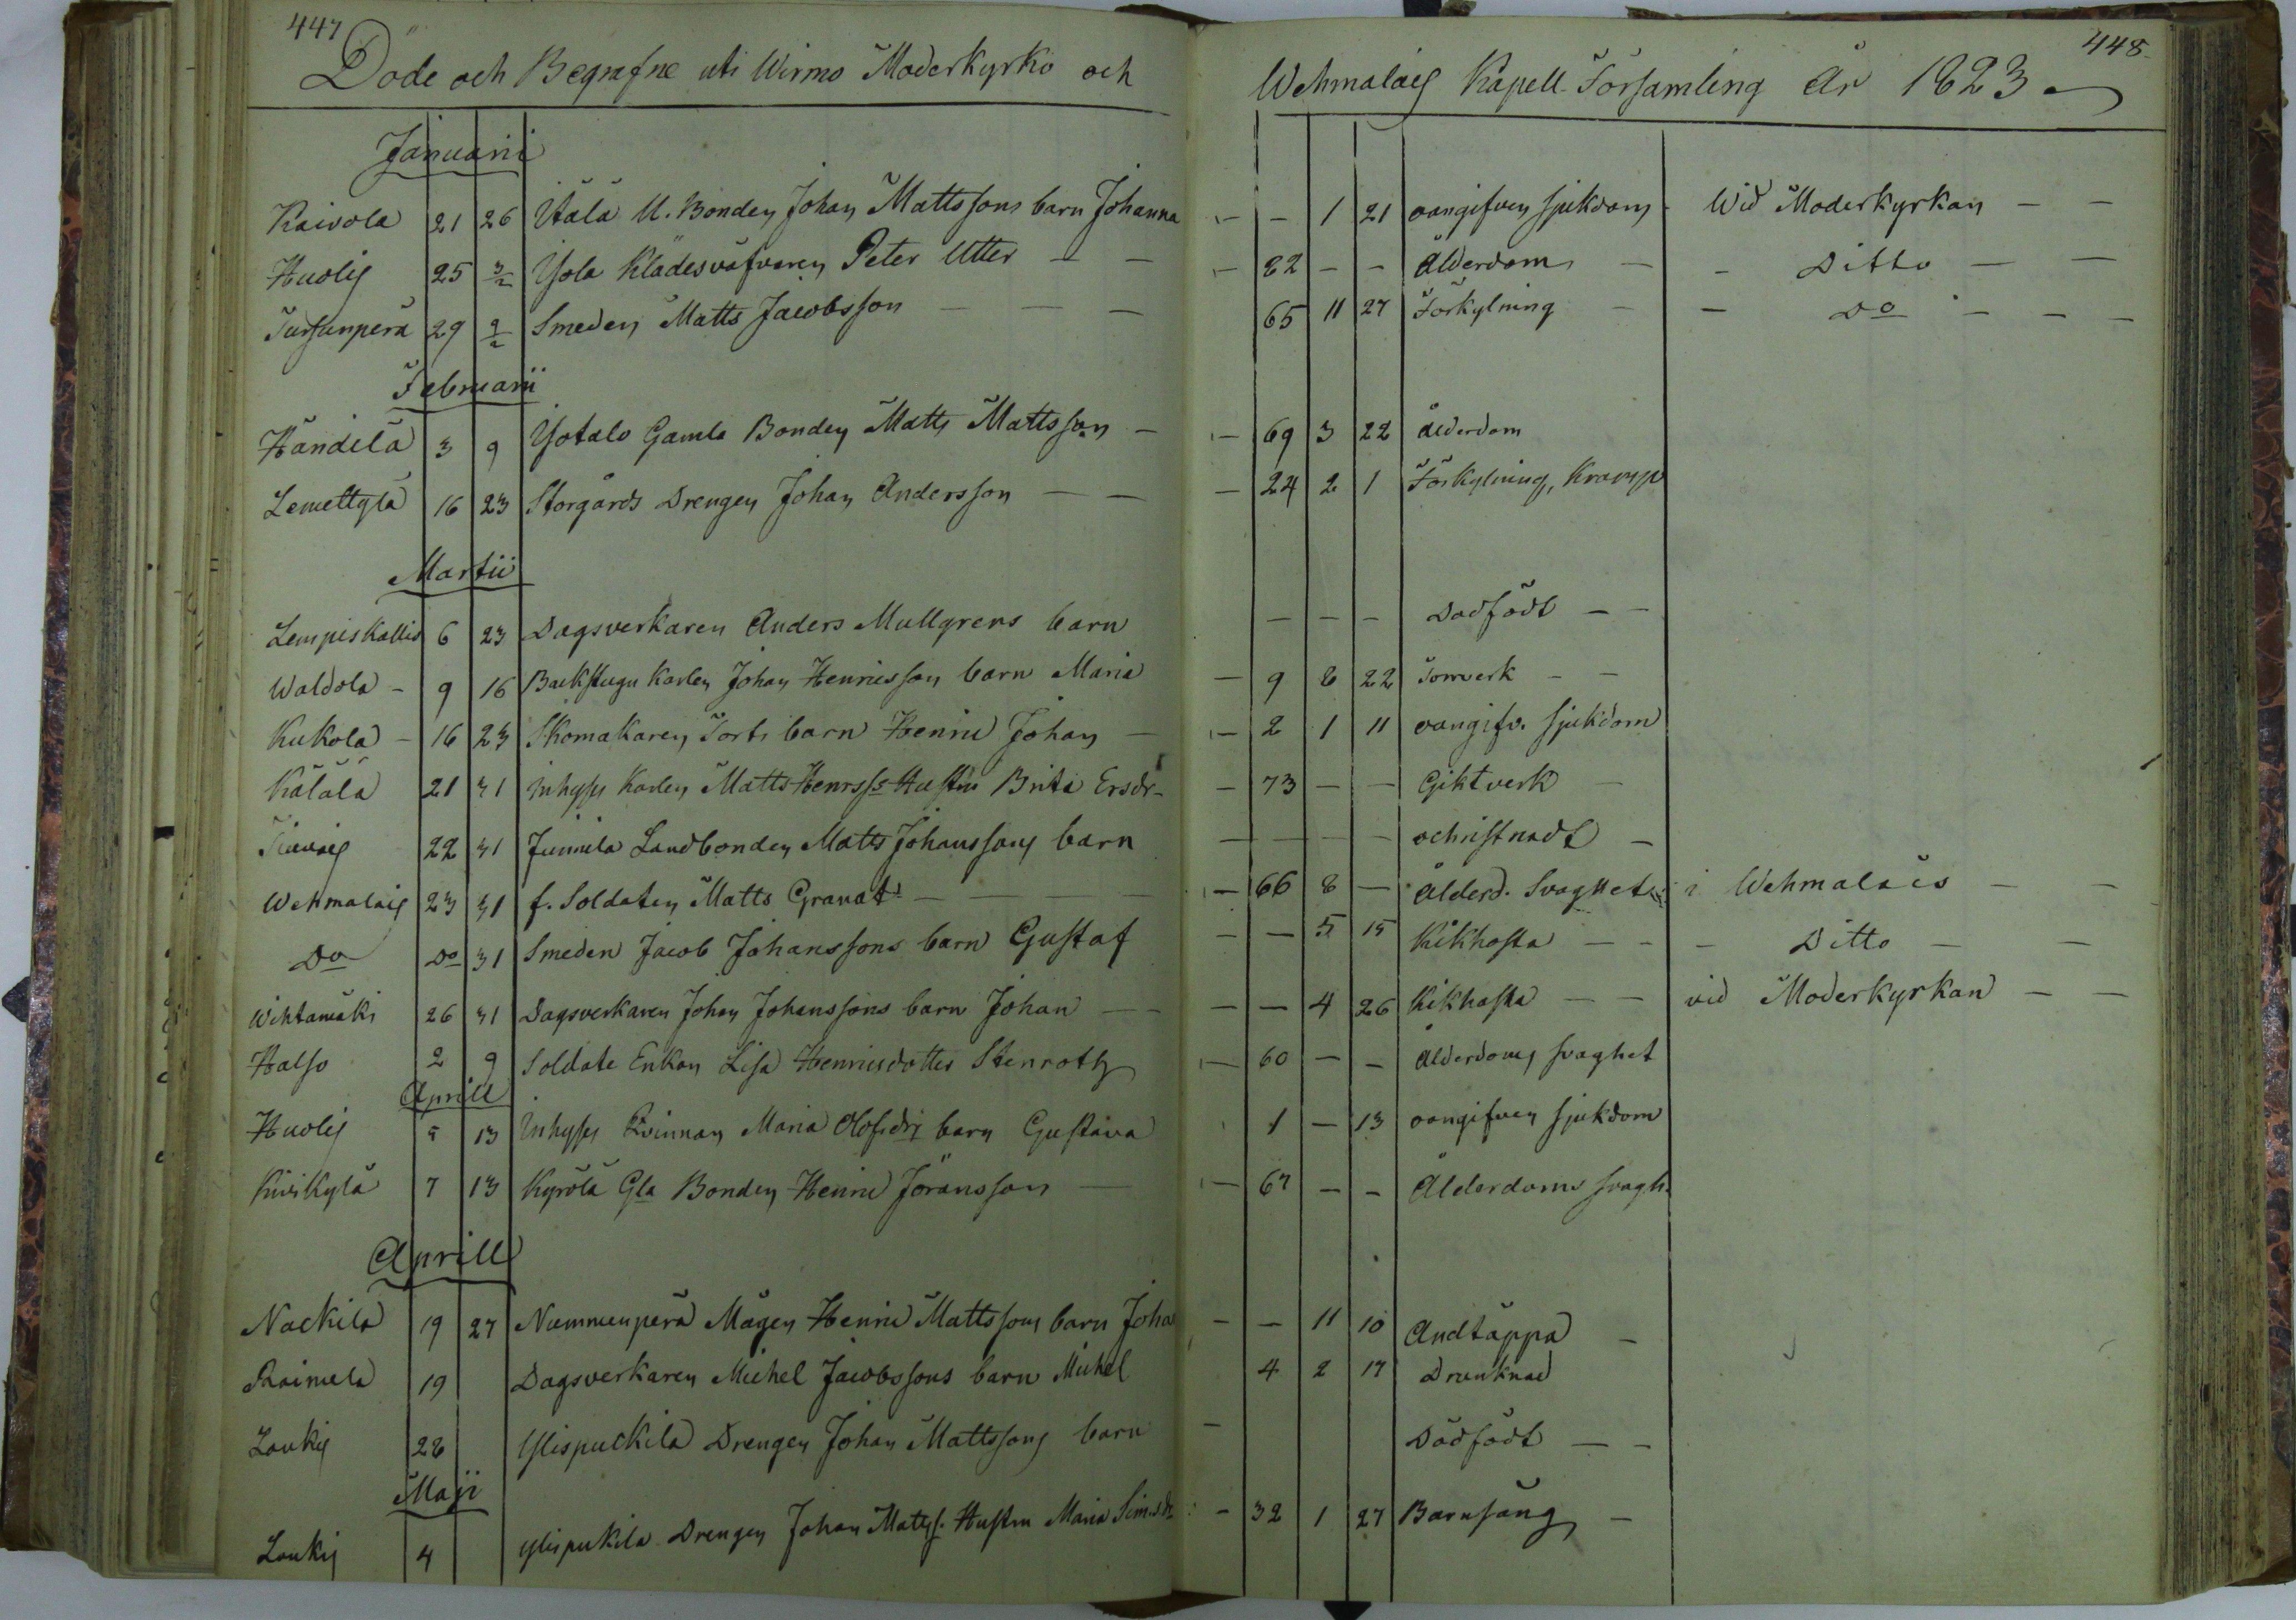 447
Döde och Begrafne uti Wirmo Moderkyrko och
Wehmalais Kapell Församling År 1823
448
Januarii
Kaivola 21 26 Itälä U. Bonden Johan Mattssons barn Johanna – – 1 21 oangifven sjukdom Wid Moderkyrkan – –
Huolis 25 3/2 Yola Klädesväfvaren Peter Utter – – – 82 – – Ålderdom – – Ditto – –
29 9/2 Smeden Matts Jacobsson – – – 65 11 27 Förkylning – – Do – – –
Februarii
Händilä 3 9 Yötalo Gamla Bonden Matts Mattsson – – 69 3 22 ålderdom
Lemettylä 16 23 Storgårds Drengen Johan Andersson – – – 24 2 1 Förkylning, Kramp
Martii
Lempiskallio 6 23 Dagsverkaren Anders Mullgrens barn – – – Dödfödt – –
Waldola – 9 16 Backstugu Karlen Johan Henricsson barn Maria – 9 8 22 Torrverk – –
Kukola – 16 23 Skomakaren barn Henric Johan – – 2 1 11 oangifv. sjukdom
Kälälä 21 31 Inhyses Karlen Matts Henrss Hustru Brita Ersdr – – 73 – – Giktverk –
22 31 Junnila Landbonden Matts Johanssons barn – – – – ochristnadt –
Wehmalais 23 31 f. Soldaten Matts Granat – – – – 66 8 – Ålderd. Svaghet i Wehmalais – –
Do Do 31 Smeden Jacob Johanssons barn Gustaf – – 5 15 Kikhosta – – – Ditto – –
Wihtamäki 26 31 Dagsverkaren Johan Johanssons barn Johan – – – – 4 26 Kikhosta – – vid Moderkyrkan – –
Halso 2 9 Soldate Enkan Lisa Henricsdotter Stenroth – 60 – – Ålderdoms svaghet
Aprill
Huolis 5 13 Inhyses Qvinnan Maria Olofsdr barn Gustava 1 – 13 oangifven sjukdom
Kivikylä 7 13 Kyrölä Gla Bonden Henric Jöransson – – 67 – – Ålderdoms svagh.
Aprill
Nackila 19 27 Nummenperä Mågen Henric Mattssons barn Joha – – 11 10 Andtäppa –
Raimela 19 Dagsverkaren Michel Jacobssons barn Michel 4 2 17 Drunknad
Loukis 28 Ylispuckila Drengen Johan Mattssons barn – Dödfödt – –
Maji
Loukis 4 Ylispukila Drengen Johan Matss. Hustru Maria Simsdr – 32 1 27 Barnsäng –